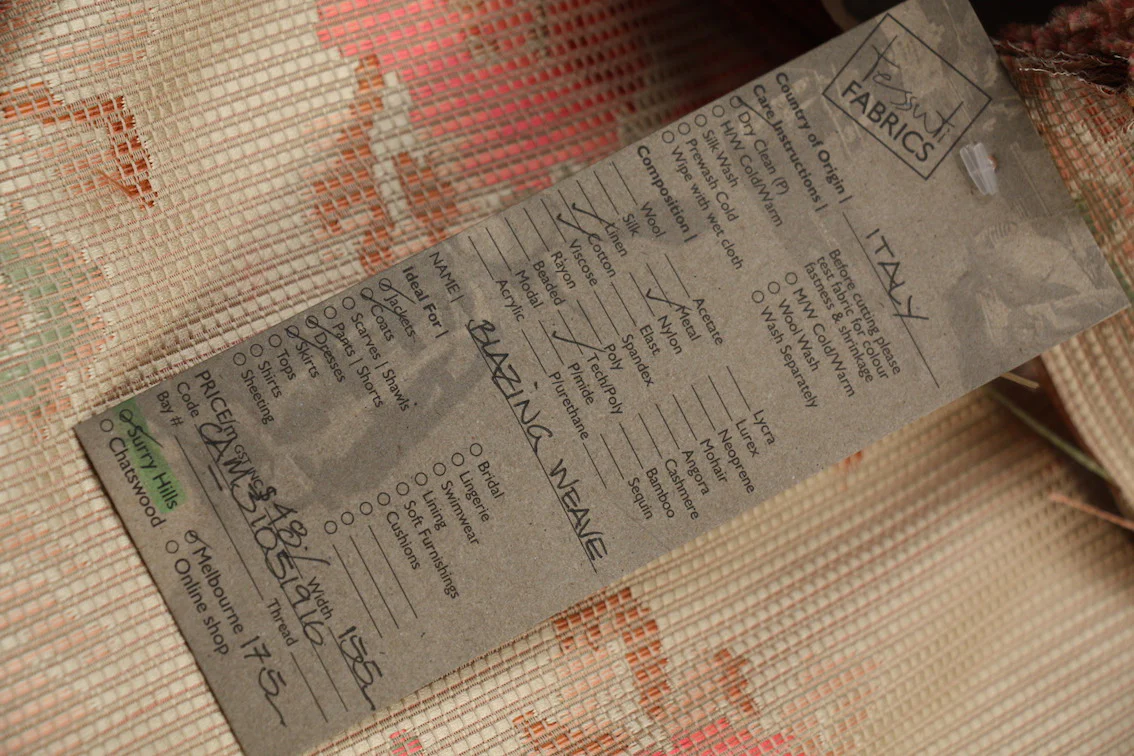 tessuti
FABRICS
Country of Origin | ITALY
Care Instructions |
Dry Clean (P)
H/W Cold/Warm
Silk Wash
Prewash Cold
Wipe with wet cloth
Before cutting please
test fabric for colour
fastness & shrinkage
M/W Cold/Warm
Wool Wash
Wash Separately
Composition |
Wool
Silk
Linen
Cotton
Viscose
Rayon
Beaded
Modal
Acrylic
Acetate
Metal
Nylon
Elast.
Spandex
Poly
Tech/Poly
P/mide
P/urethane
Lycra
Lurex
Neoprene
Mohair
Angora
Cashmere
Bamboo
Sequin
NAME | BLAZING WEAVE
Ideal For |
Jackets
Coats
Scarves | Shawls
Pants | Shorts
Dresses
Skirts
Tops
Shirts
Sheeting
Bridal
Lingerie
Swimwear
Lining
Soft Furnishings
Cushions
Width 155
Code CAM31051916
Bay #
Thread
Surry Hills
Chatswood
Melbourne 175
Online shop